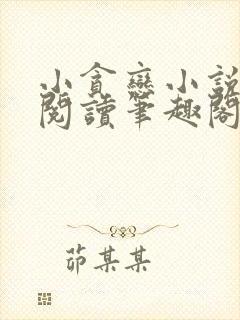 小貪戀小說
閱讀筆趣閣
茆某某